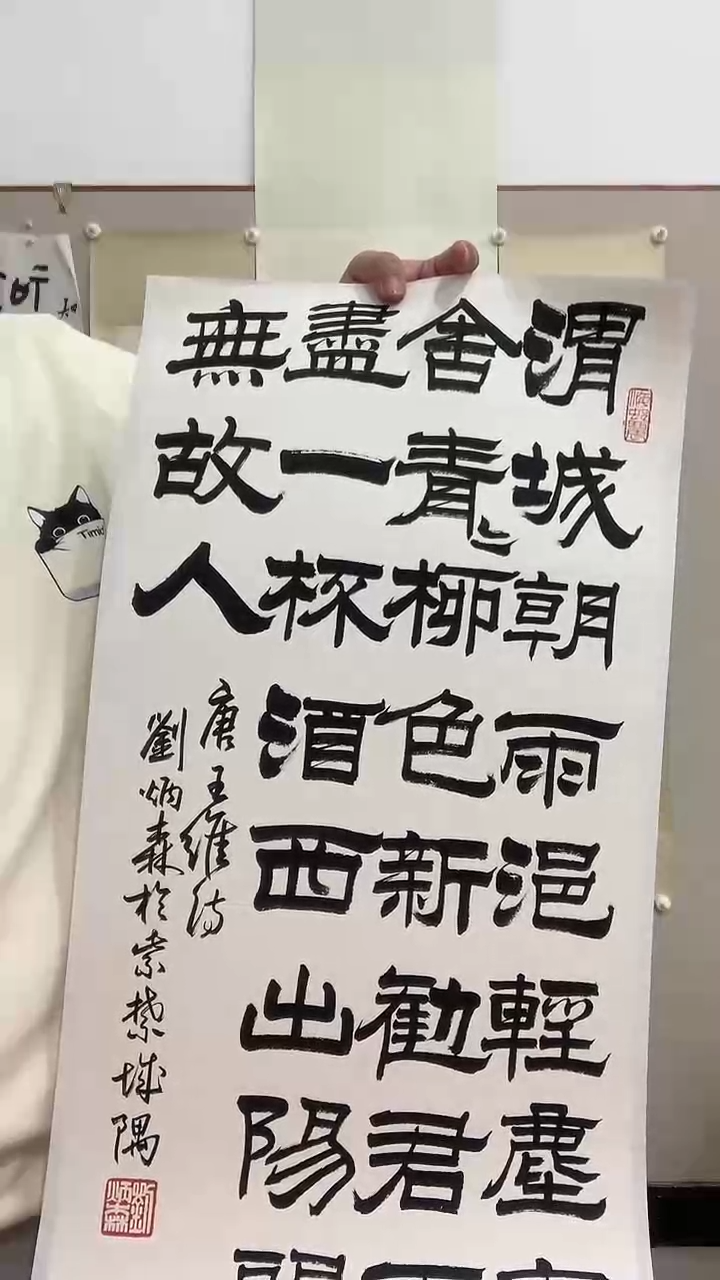 渭城朝雨浥輕塵
舍青〻柳色新勸君
盡一杯酒西出陽
無故人
唐王維詩
劉炳森於紫禁城隅
劉炳森